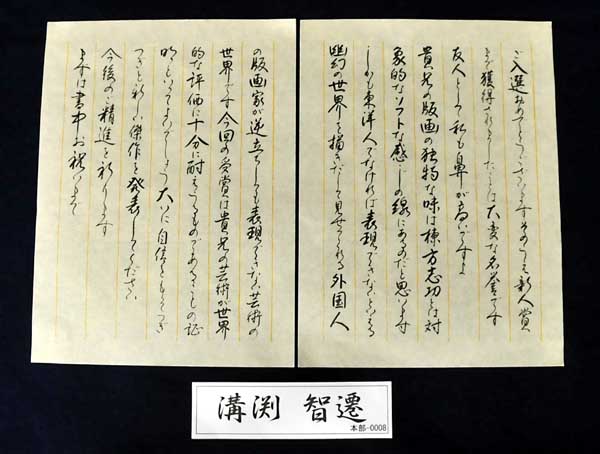 ご入選おめでとうございます そのうえ新人賞
まで獲得されましたことは大変な名誉です
友人として私も鼻が高いですよ
貴兄の版画の独特な味は棟方志功とは対
象的なソフトな感じの線にあるのだと思います
しかも東洋人でなければ表現できないといえる
幽幻の世界を描きだして見せてくれる外国人
の版画家が逆立ちしても表現できない芸術の
世界です 今回の受賞は貴兄の芸術が世界
的な評価に十分に耐えうるものであることの証
明といってよいでしょう 大いに自信をもってつぎ
つぎと新しい傑作を発表してください
今後のご精進を祈ります
まずは書中お祝いまで
溝渕 智遷
本部-0008